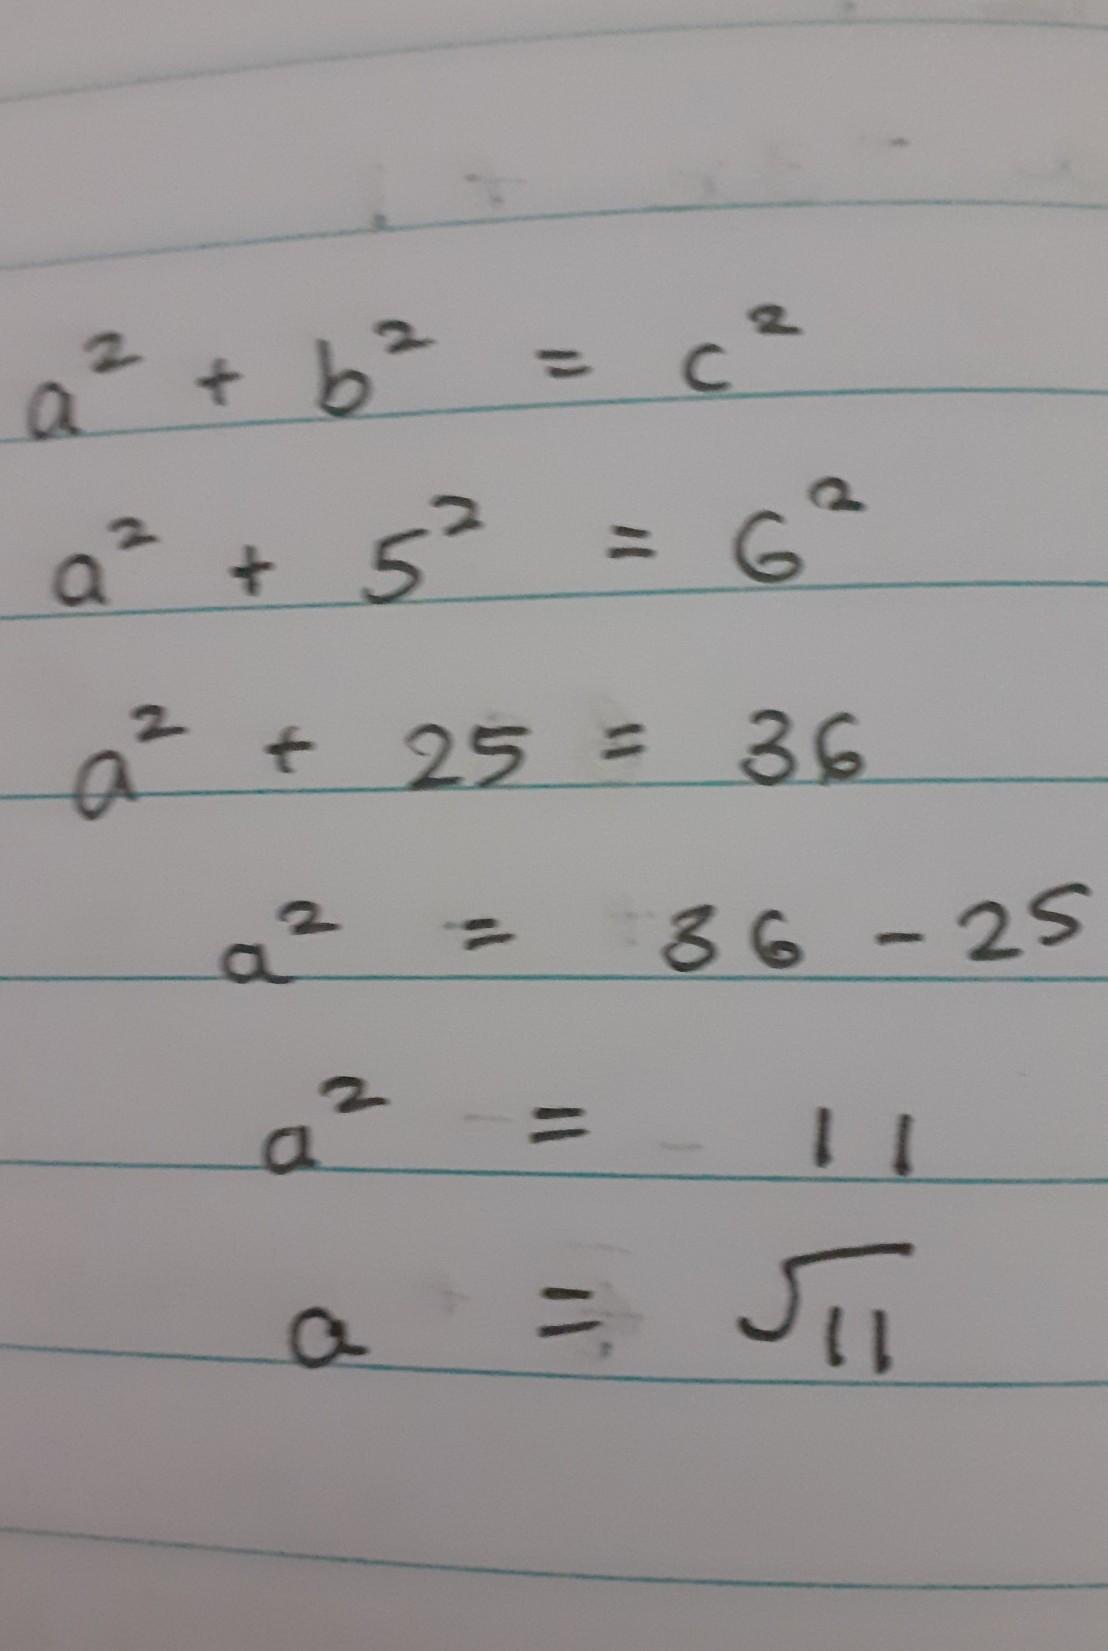 a² + b² = c²
a² + 5² = 6²
a² + 25 = 36
a² = 36 - 25
a² = 11
a = √11